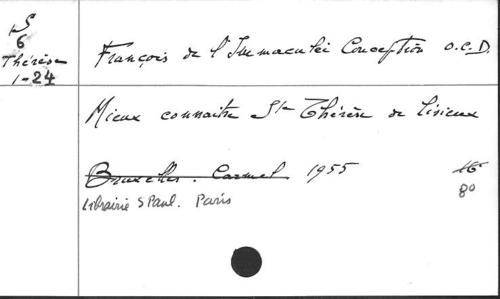 S
6
Thérèse
1-24
François de l'Immaculée Conception O.C.D.
Mieux connaitre Ste Thérèse de Lisieux
Bruxelles. Carmel 1955 16°
8°
Librairie S Paul. Paris